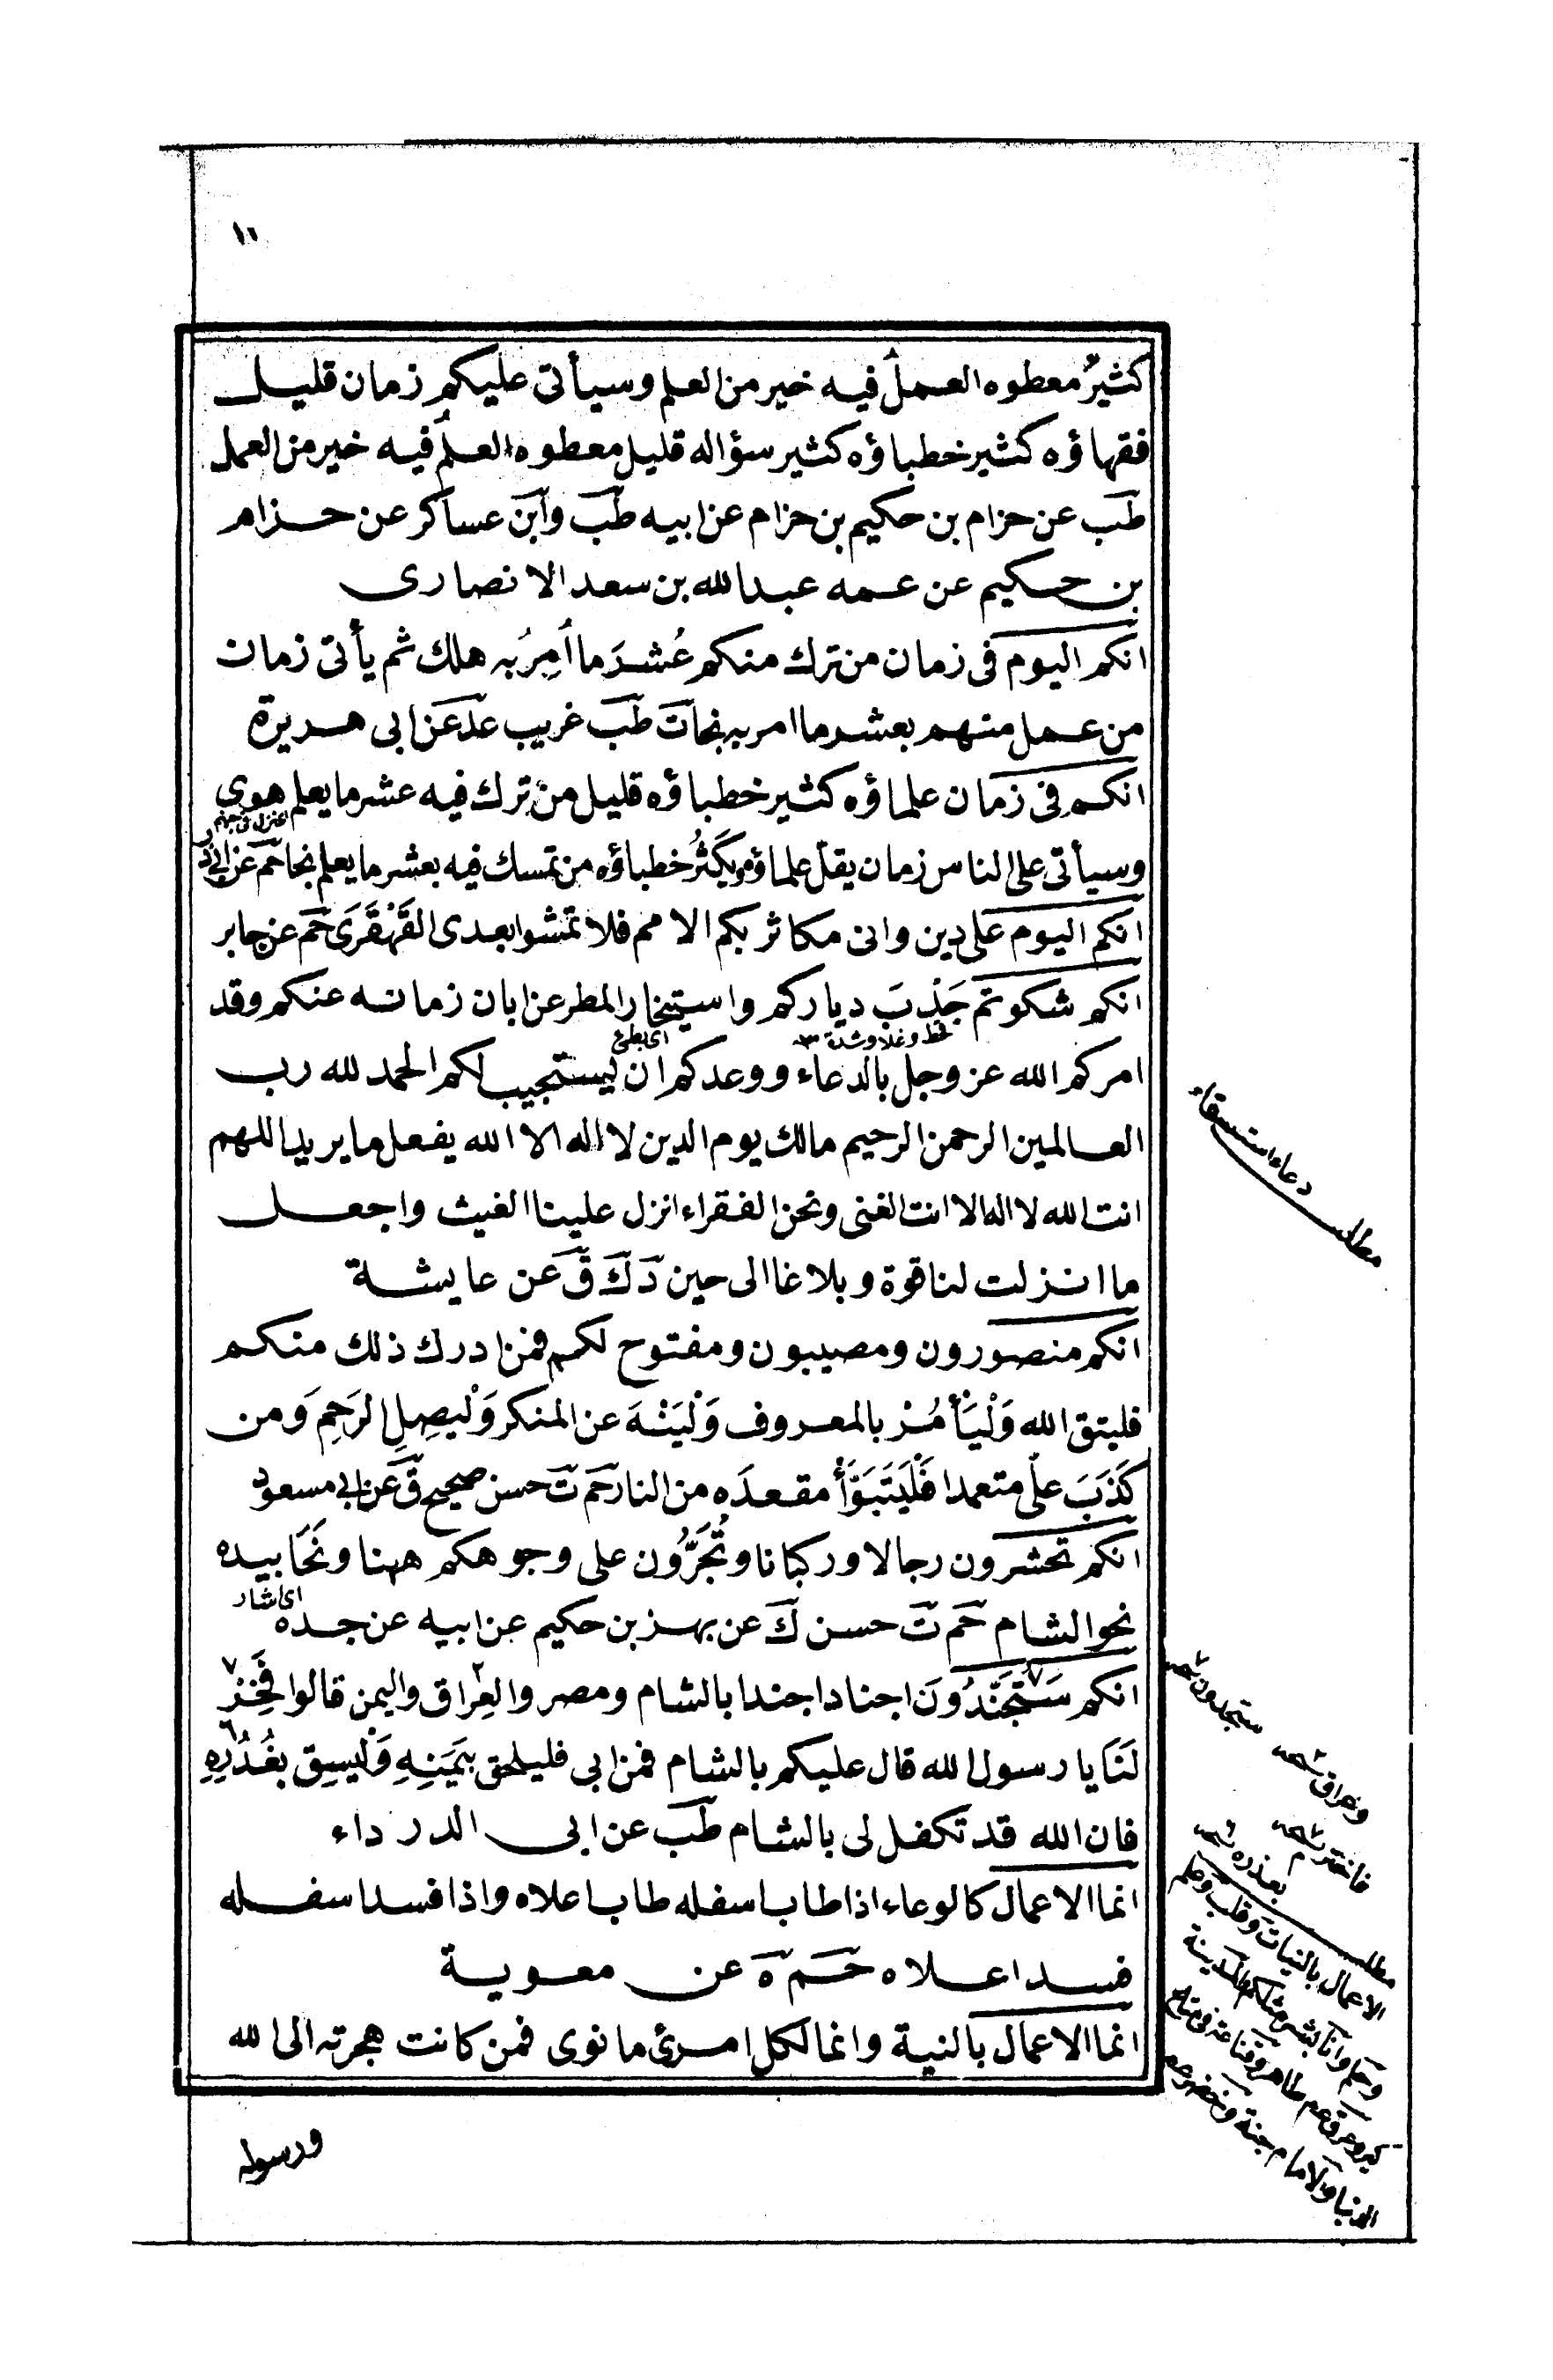 كثيرُ معطوه العملُ فيه خير من العلم وسيأتى عليكم زمان قليل
فقهاؤه كثير خطباؤه كثير سؤاله قليل معطوه العلمُ فيه خير من العمل
طب عن حزام بن حكيم بن حزام عن ابيه طب وابن عساكر عن حزام
بن حكيم عن عمه عبد الله بن سعد الانصارى
انكم اليوم فى زمان من ترك منكم عُشرَ ما اُمِرَ به هلك ثم يأتى زمان
من عمل منهم بعشر ما امر به نجا ت طب غريب عد عن ابى هريرة
انكم فى زمان علماؤه كثير خطباؤه قليل من ترك فيه عشر ما يعلم هوى
وسيأتى على الناس زمان يقلّ علماؤه ويكثُر خطباؤه من تمسك فيه بعشر ما يعلم نجا حم عن ابى ذر
انكم اليوم على دين وانى مكاثر بكم الامم فلا تمشوا بعدى القَهْقَرَى حم عن جابر
انكم شكوتم جَدْبَ دياركم واستيخار المطر عن ابان زمانه عنكم وقد
قحط وغلا وشدة
اى بطئ
امركم الله عز وجل بالدعاء ووعدكم ان يستجيب لكم الحمد لله رب
العالمين الرحمن الرحيم مالك يوم الدين لا اله الا الله يفعل ما يريد اللهم
انت الله لا اله الا انت الغنى ونحن الفقراء انزل علينا الغيث واجعل
ما انزلت لنا قوة وبلاغا الى حين د ك ق عن عايشة
انكم منصورون ومصيبون ومفتوح لكم فمن ادرك ذلك منكم
فليتق الله وَلْيَأمُرْ بالمعروف وَلْيَنْهَ عن المنكر وَلْيصِلِ الرَحِمَ ومن
كَذَبَ علىّ متعمدا فَلْيَتَبَوَّأْ مقعدَه من النار حم ت حسن صحيح ق عن ابى مسعود
انكم تحشرون رجالا وركبانا وتُجَرُّون على وجوهكم ههنا ونَحَا بيده
اى اشار
نحو الشام حم ت حسن ك عن بهز بن حكيم عن ابيه عن جده
انكم سَتُجَنَّدُونَ اجنادا جندا بالشام ومصر والعِراق واليمن قالوا فَخِرْ
لَنَا يا رسول الله قال عليكم بالشام فمن ابى فليلحق بيَمَنِهِ وَلْيسِق بغُدُرِهِ
فان الله قد تكفل لى بالشام طب عن ابى الدرداء
انما الاعمال كالوعاء اذا طاب اسفله طاب اعلاه واذا فسد اسفله
فسد اعلاه حم ه عن معوية
انما الاعمال بالنية وانما لكل امرئ ما نوى فمن كانت هجرته الى الله
ورسوله
مطلب
دعاء استسقاء
ستجدون
وعراق
فاختر
بعذره
مطلب
الاعمال بالنيات